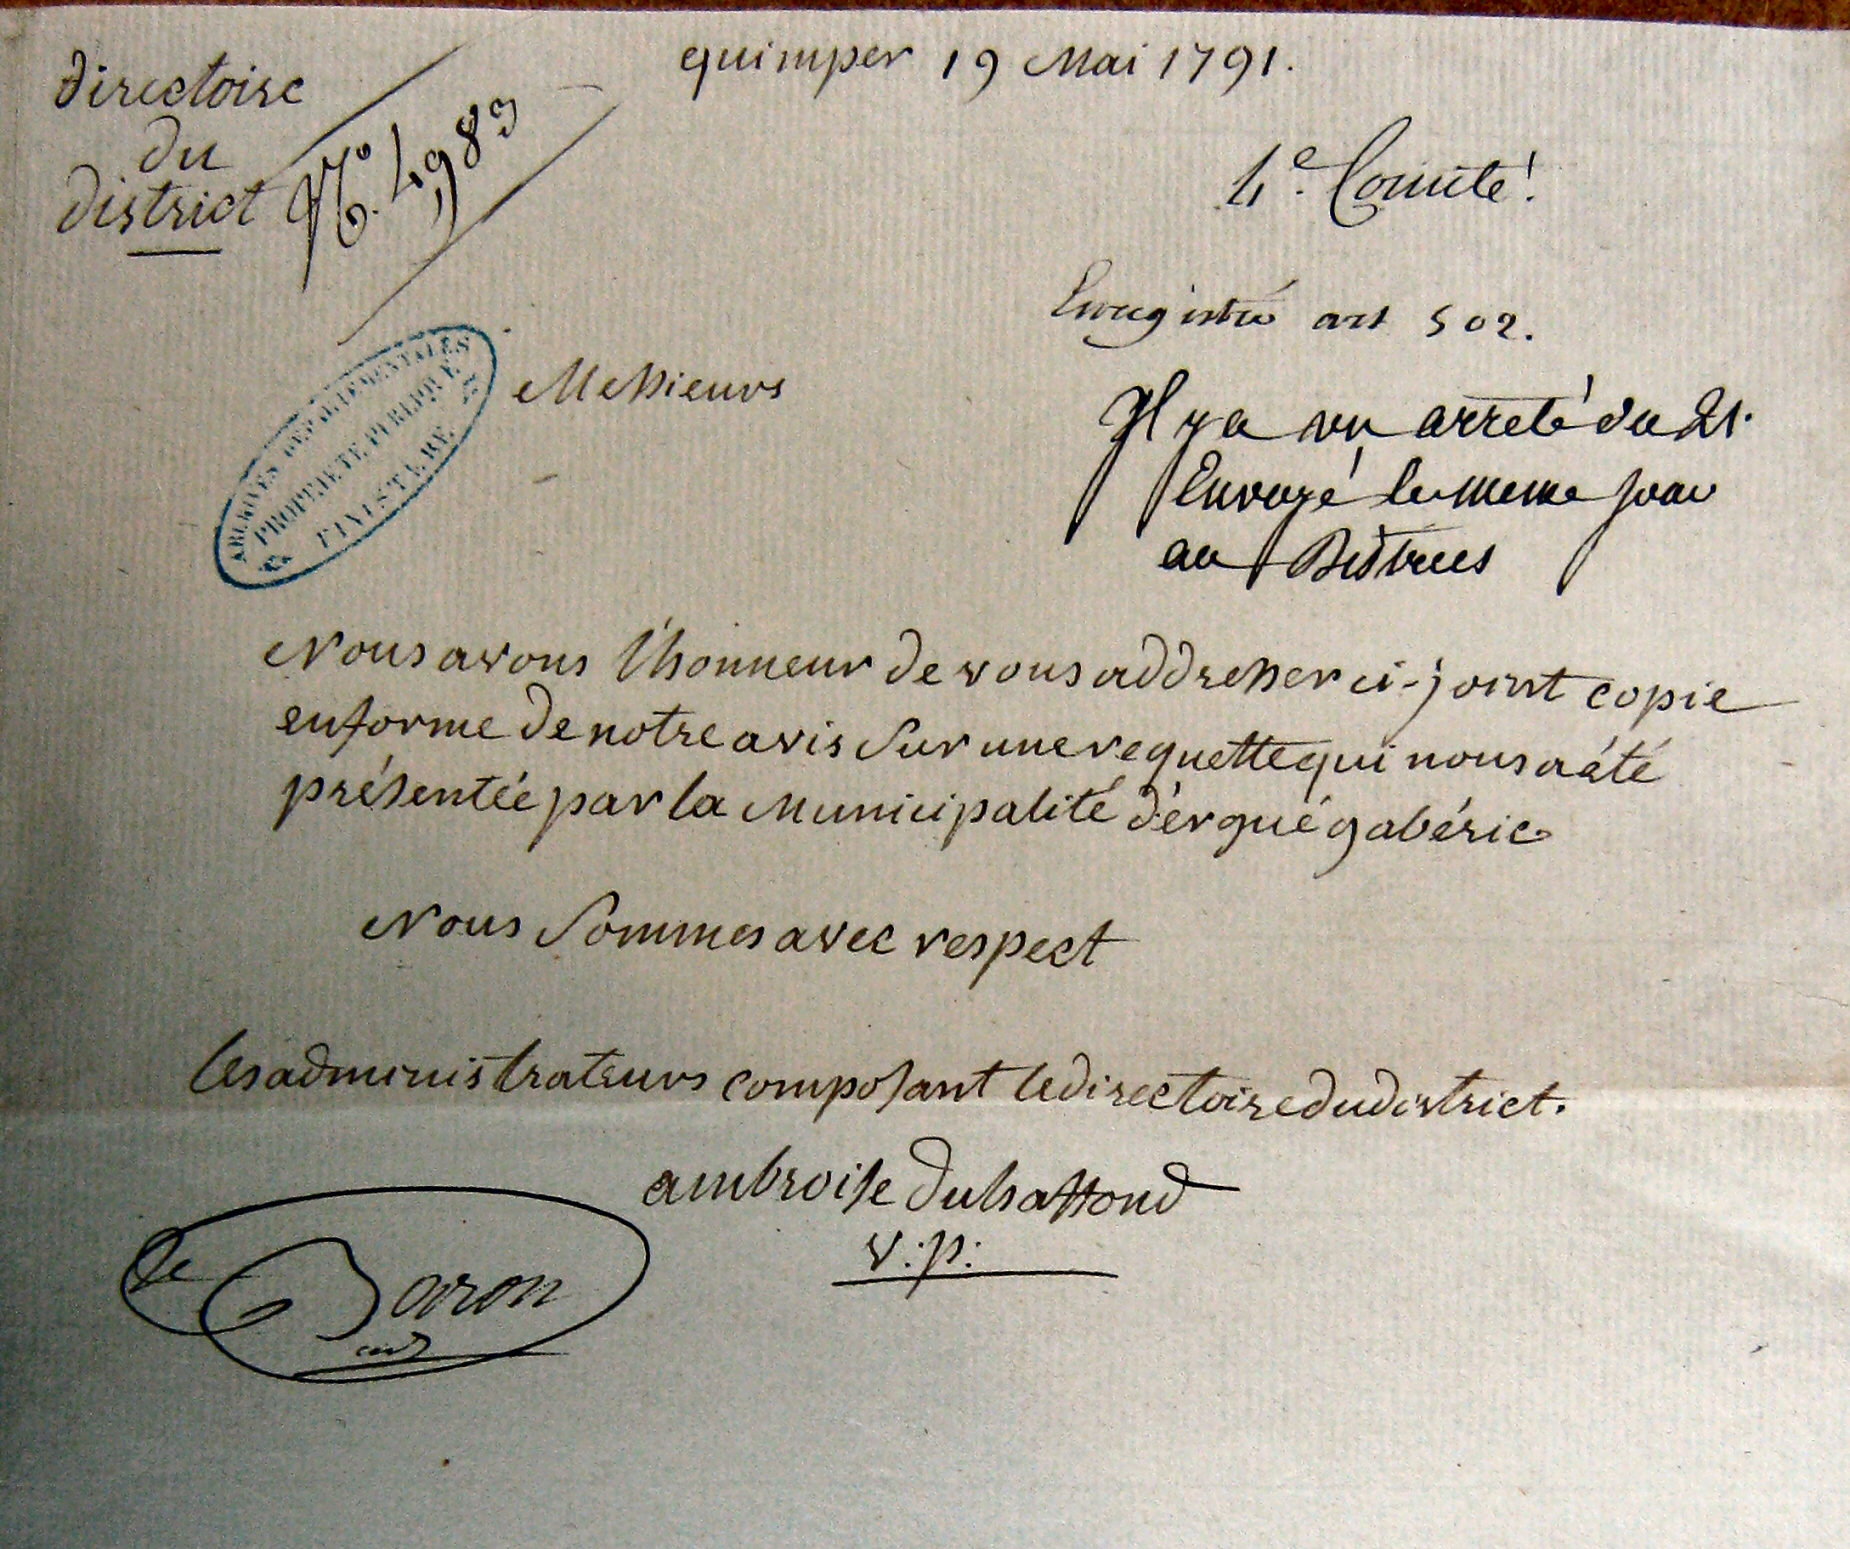 quimper 19 Mai 1791.
directoire
du
district
N.º 4983
4e. Comité.
Enregistré art 502.
Messieurs
Il y a un arreté du 21.
Envoyé le meme jour
au District
ARCHIVES DÉPARTEMENTALES
PROPRIÉTÉ PUBLIQUE
FINISTÈRE
Nous avons l'honneur de vous addresser ci-joint copie
en forme de notre avis sur une requette qui nous a été
présentée par la Municipalité d'érgué gabéric
Nous sommes avec respect
les administrateurs composant le directoire du district.
ambroise duhaffond
v.p.
le Baron